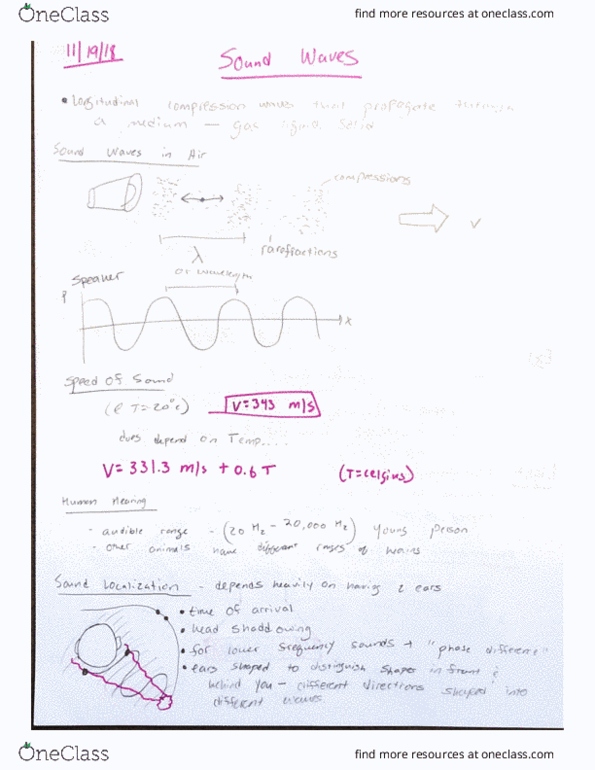 OneClass
find more resources at oneclass.com
11/19/18
Sound Waves
• Longitudinal compression waves that propagate through
a medium — gas liquid, solid
Sound Waves in Air
compressions
v
λ
rarefractions
or wavelength
Speaker
P
x
Speed of Sound
(@ T=20°c)
V=343 m/s
does depend on Temp....
V= 331.3 m/s + 0.6 T
(T=celgius)
Human Hearing
- audible range - (20 Hz - 20,000 Hz) young person
- other animals have different ranges of
Sound Localization - depends heavily on having 2 ears
• time of arrival
• head shaddowing
• for lower frequency sounds → "phase difference"
• ears shaped to distinguish shapes in front &
behind you — different directions shaped into
different waves
OneClass
find more resources at oneclass.com